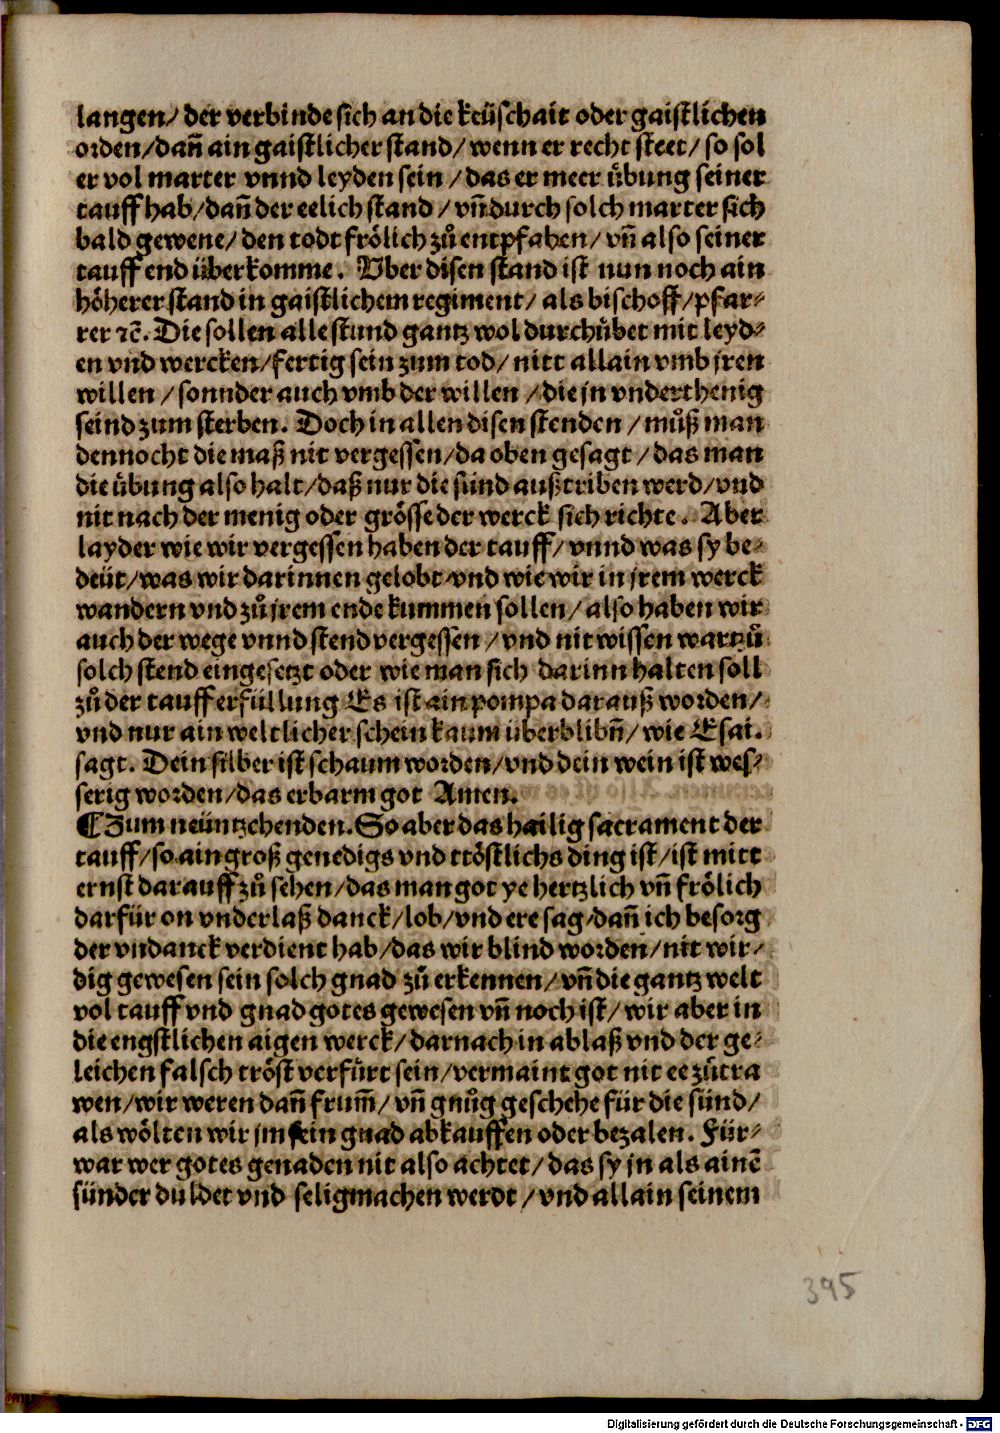 langen/ der verbinde sich an die keüschait oder gaistlichen
orden/dañ ain gaistlicher stand/ wenn er recht steet/ so sol
er vol marter vnnd leyden sein /das er meer übung seiner
tauff hab/dañ der eelich stand /vñ durch solch marter sich
bald gewene/ den todt frölich zů entpfahen/ vñ also seiner
tauff end überkomme. Vber disen stand ist nun noch ain
höherer stand in gaistlichem regiment/ als bischoff/pfar-
rer ⁊c̄. Die sollen alle stund gantz wol durchübet mit leyd-
en vnd wercken/fertig sein zum tod/ nitt allain vmb jren
willen /sonnder auch vmb der willen /die jn vnderthenig
seind zum sterben. Doch in allen disen stenden /můß man
dennocht die maß nit vergessen/da oben gesagt /das man
die übung also halt/daß nur die sünd außtriben werd/vnd
nit nach der menig oder grösse der werck sich richte. Aber
layder wie wir vergessen haben der tauff/ vnnd was sy be-
deüt/was wir darinnen gelobt/vnd wie wir in jrem werck
wandern vnd zů jrem ende kummen sollen/ also haben wir
auch der wege vnnd stend vergessen /vnd nit wissen wartzů
solch stend eingesetzt oder wie man sich darinn halten soll
zů der tauff erfüllung Es ist ain pompa darauß worden/
vnd nur ain weltlicher schein kaum überblibñ/ wie Esai.
sagt. Dein silber ist schaum worden/vnd dein wein ist wes-
serig worden/das erbarm got Amen.
¶Zum neüntzehenden. So aber das hailig sacrament der
tauff/so ain groß genedigs vnd tröstlichs ding ist/ist mitt
ernst darauff zů sehen/das man got ye hertzlich vñ frölich
darfür on vnderlaß danck/lob/vnd ere sag/dañ ich besorg
der vndanck verdient hab/das wir blind worden/nit wir-
dig gewesen sein solch gnad zů erkennen/ vñ die gantz welt
vol tauff vnd gnad gotes gewesen vñ noch ist/ wir aber in
die engstlichen aigen werck/darnach in ablaß vnd der ge-
leichen falsch tröst verfürt sein/vermaint got nit ee zůtra
wen/wir weren dañ frum̃/ vñ gnůg geschehe für die sünd/
als wölten wir jm sein gnad abkauffen oder bezalen. Für-
war wer gotes genaden nit also achtet/das sy jn als ainē
sünder duldet vnd seligmachen werdt /vnd allain seinem
395
Digitalisierung gefördert durch die Deutsche Forschungsgemeinschaft - DFG